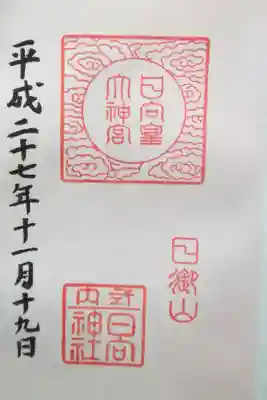 日向皇
大神宮
日御山
式内
日向
神社
平成二十七年十一月十九日